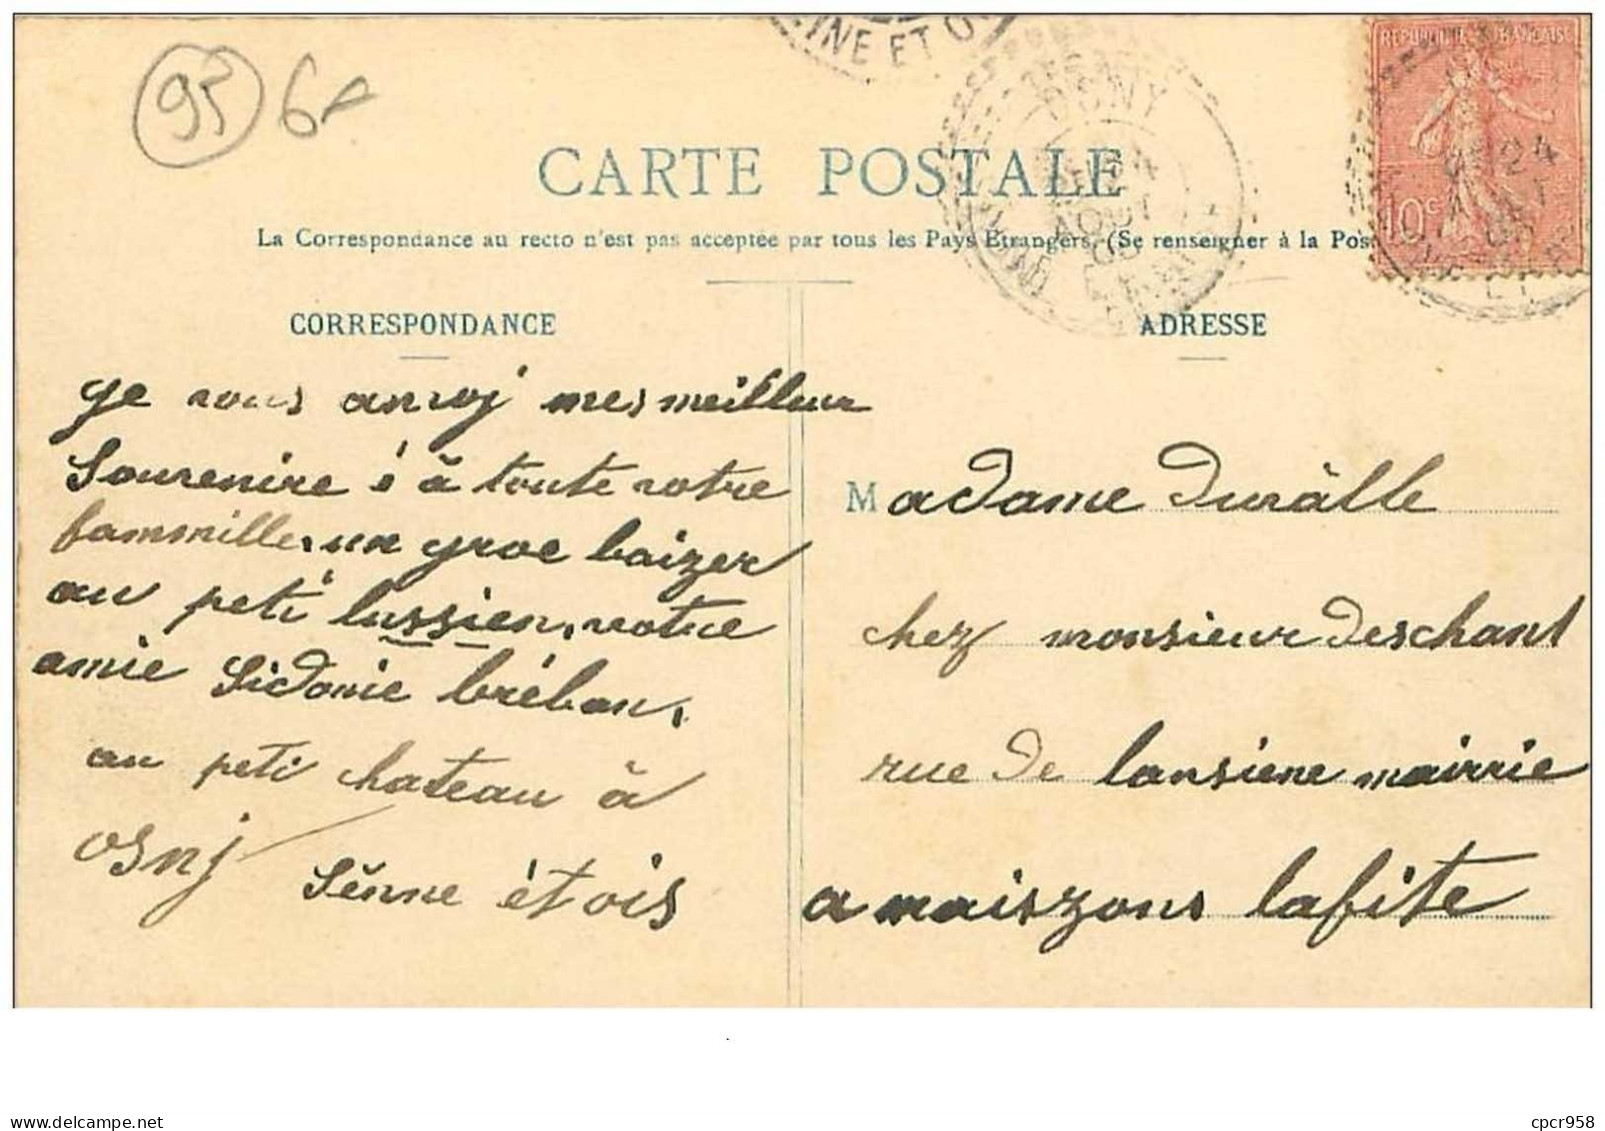 95 6
INE ET O
RÉPUBLIQUE FRANÇAISE
10c
OSNY
24
AOUT
CARTE POSTALE
La Correspondance au recto n'est pas acceptée par tous les Pays Etrangers, (Se renseigner à la Pos
CORRESPONDANCE
ge vous anvoj mes meilleur
Souvenire é à toute votre
fammille, un groe baizer
au peti lussien, votre
amie Sidonie bréban,
au peti chateau à
osnj
Sénne ét ois
ADRESSE
Madame Durâlle
chez monsieur Deschant
rue De lansiene mairrie
a maiszons lafite
delcampe.net
cpcr958